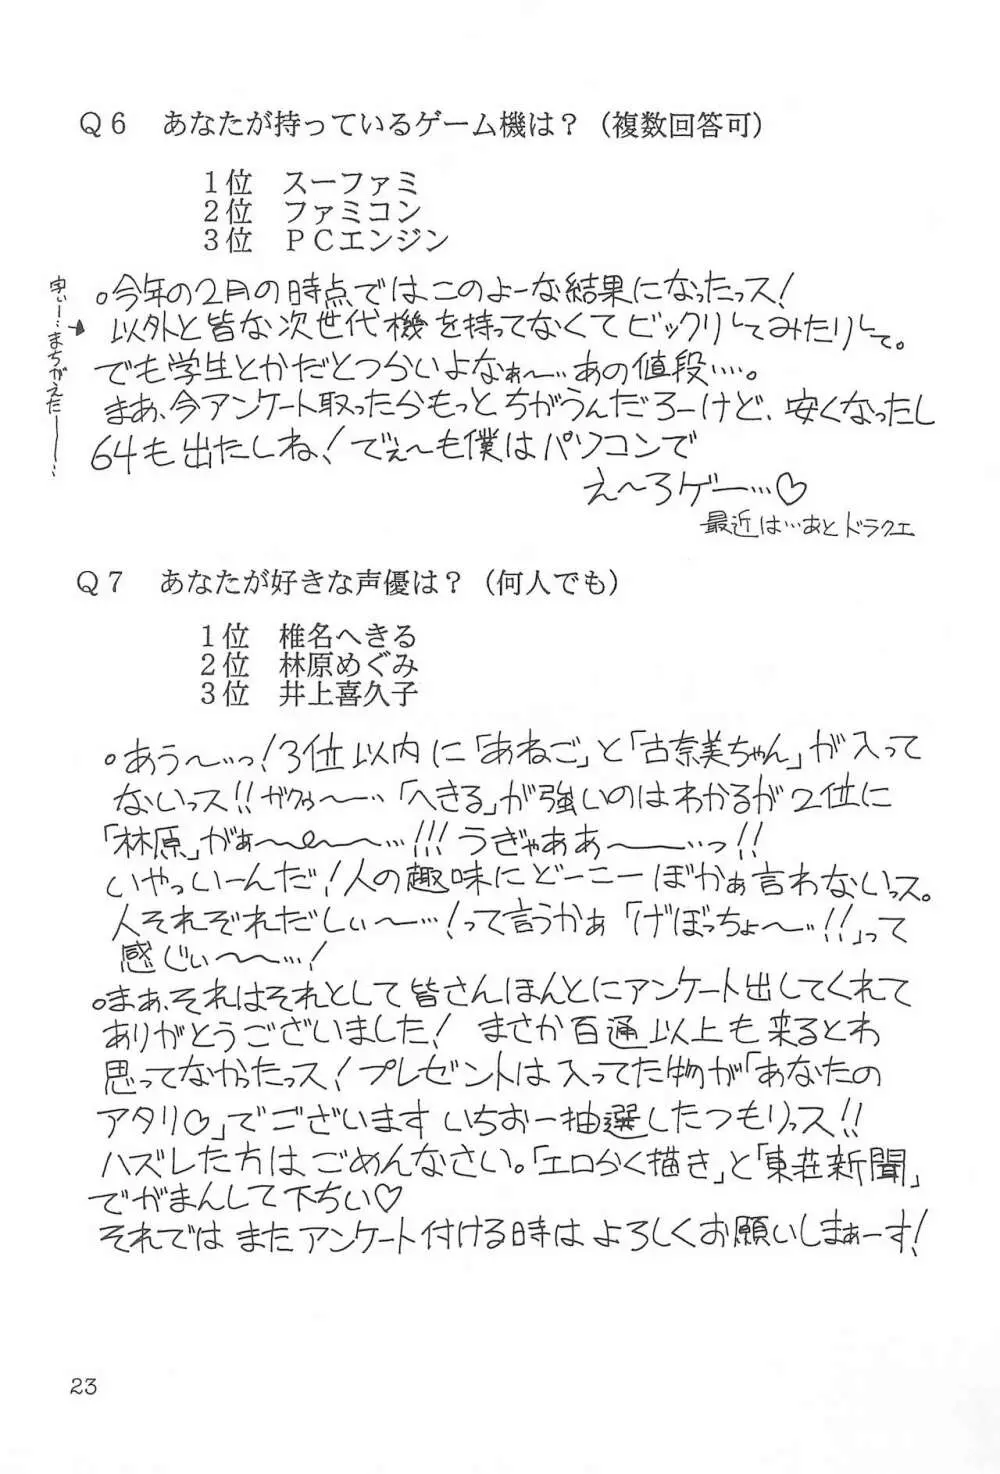 Ｑ６　あなたが持っているゲーム機は？（複数回答可）
１位　スーファミ
２位　ファミコン
３位　ＰＣエンジン
。今年の2月の時点ではこのよーな結果になったっス!
以外と皆な次世代機を持ってなくてビックリしてみたりして。
字ぃー…まちがえたー…
でも学生とかだとつらいよなぁ〜…あの値段…。
まぁ、今アンケート取ったらもっとちがうんだろーけど、安くなったし
64も出たしね! でぇ〜も僕はパソコンで
え〜ろゲー…♡
最近は…あとドラクエ
Ｑ７　あなたが好きな声優は？（何人でも）
１位　椎名へきる
２位　林原めぐみ
３位　井上喜久子
。あう〜…っ!3位以内に「あねご」と「古奈美ちゃん」が入って
ないっス!!ガクゥ〜…「へきる」が強いのはわかるが2位に
「林原」がぁ〜〜…!!!うぎゃああ〜…っ!!
いやっいーんだ!人の趣味にどーこーぼかぁ言わないっス。
人それぞれだしぃ〜…!って言うかぁ「げぼっちょ〜…!!」って
感じぃ〜…!
。まぁ、それはそれとして皆さんほんとにアンケート出してくれて
ありがとうございました! まさか百通以上も来るとわ
思ってなかったっス!プレゼントは入ってた物が「あなたの
アタリ♡」でございますいちおー抽選したつもりっス!!
ハズレた方はごめんなさい。「エロらく描き」と「東荘新聞」
でがまんして下ちい♡
それではまたアンケート付ける時はよろしくお願いしまぁーす!
23